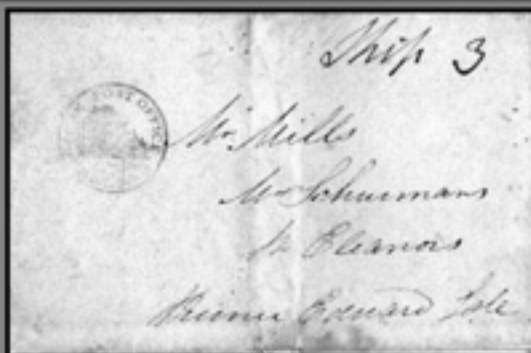 Ship 3
POST OFFICE
Mr. Mills
Mr Schurmans
St Eleanors
Prince Edward Isle